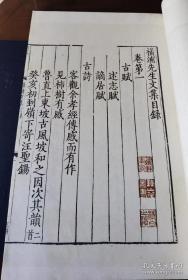 橫浦先生文集目錄
卷第一
古賦
述志賦
謫居賦
古詩
客觀余孝經傳感而有作
見柿樹有感
魯直上東坡古風坡和之因次其韻二首
癸亥初到嶺下寄汪聖錫